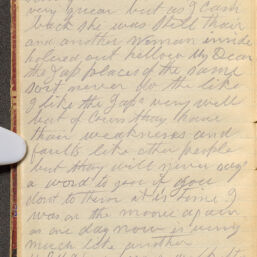 very quear but as I cam
back she was still thair
and another woman inside
holered out hellow My Dear
the Jap places of the same
sort never do the like
I like the Japs very well
but of Corse thay have
thair weaknesses and
faults like other people
but thay will never say
a word to you if you
dont to them at is time I
was on the moove again
as one day now is very
much like another